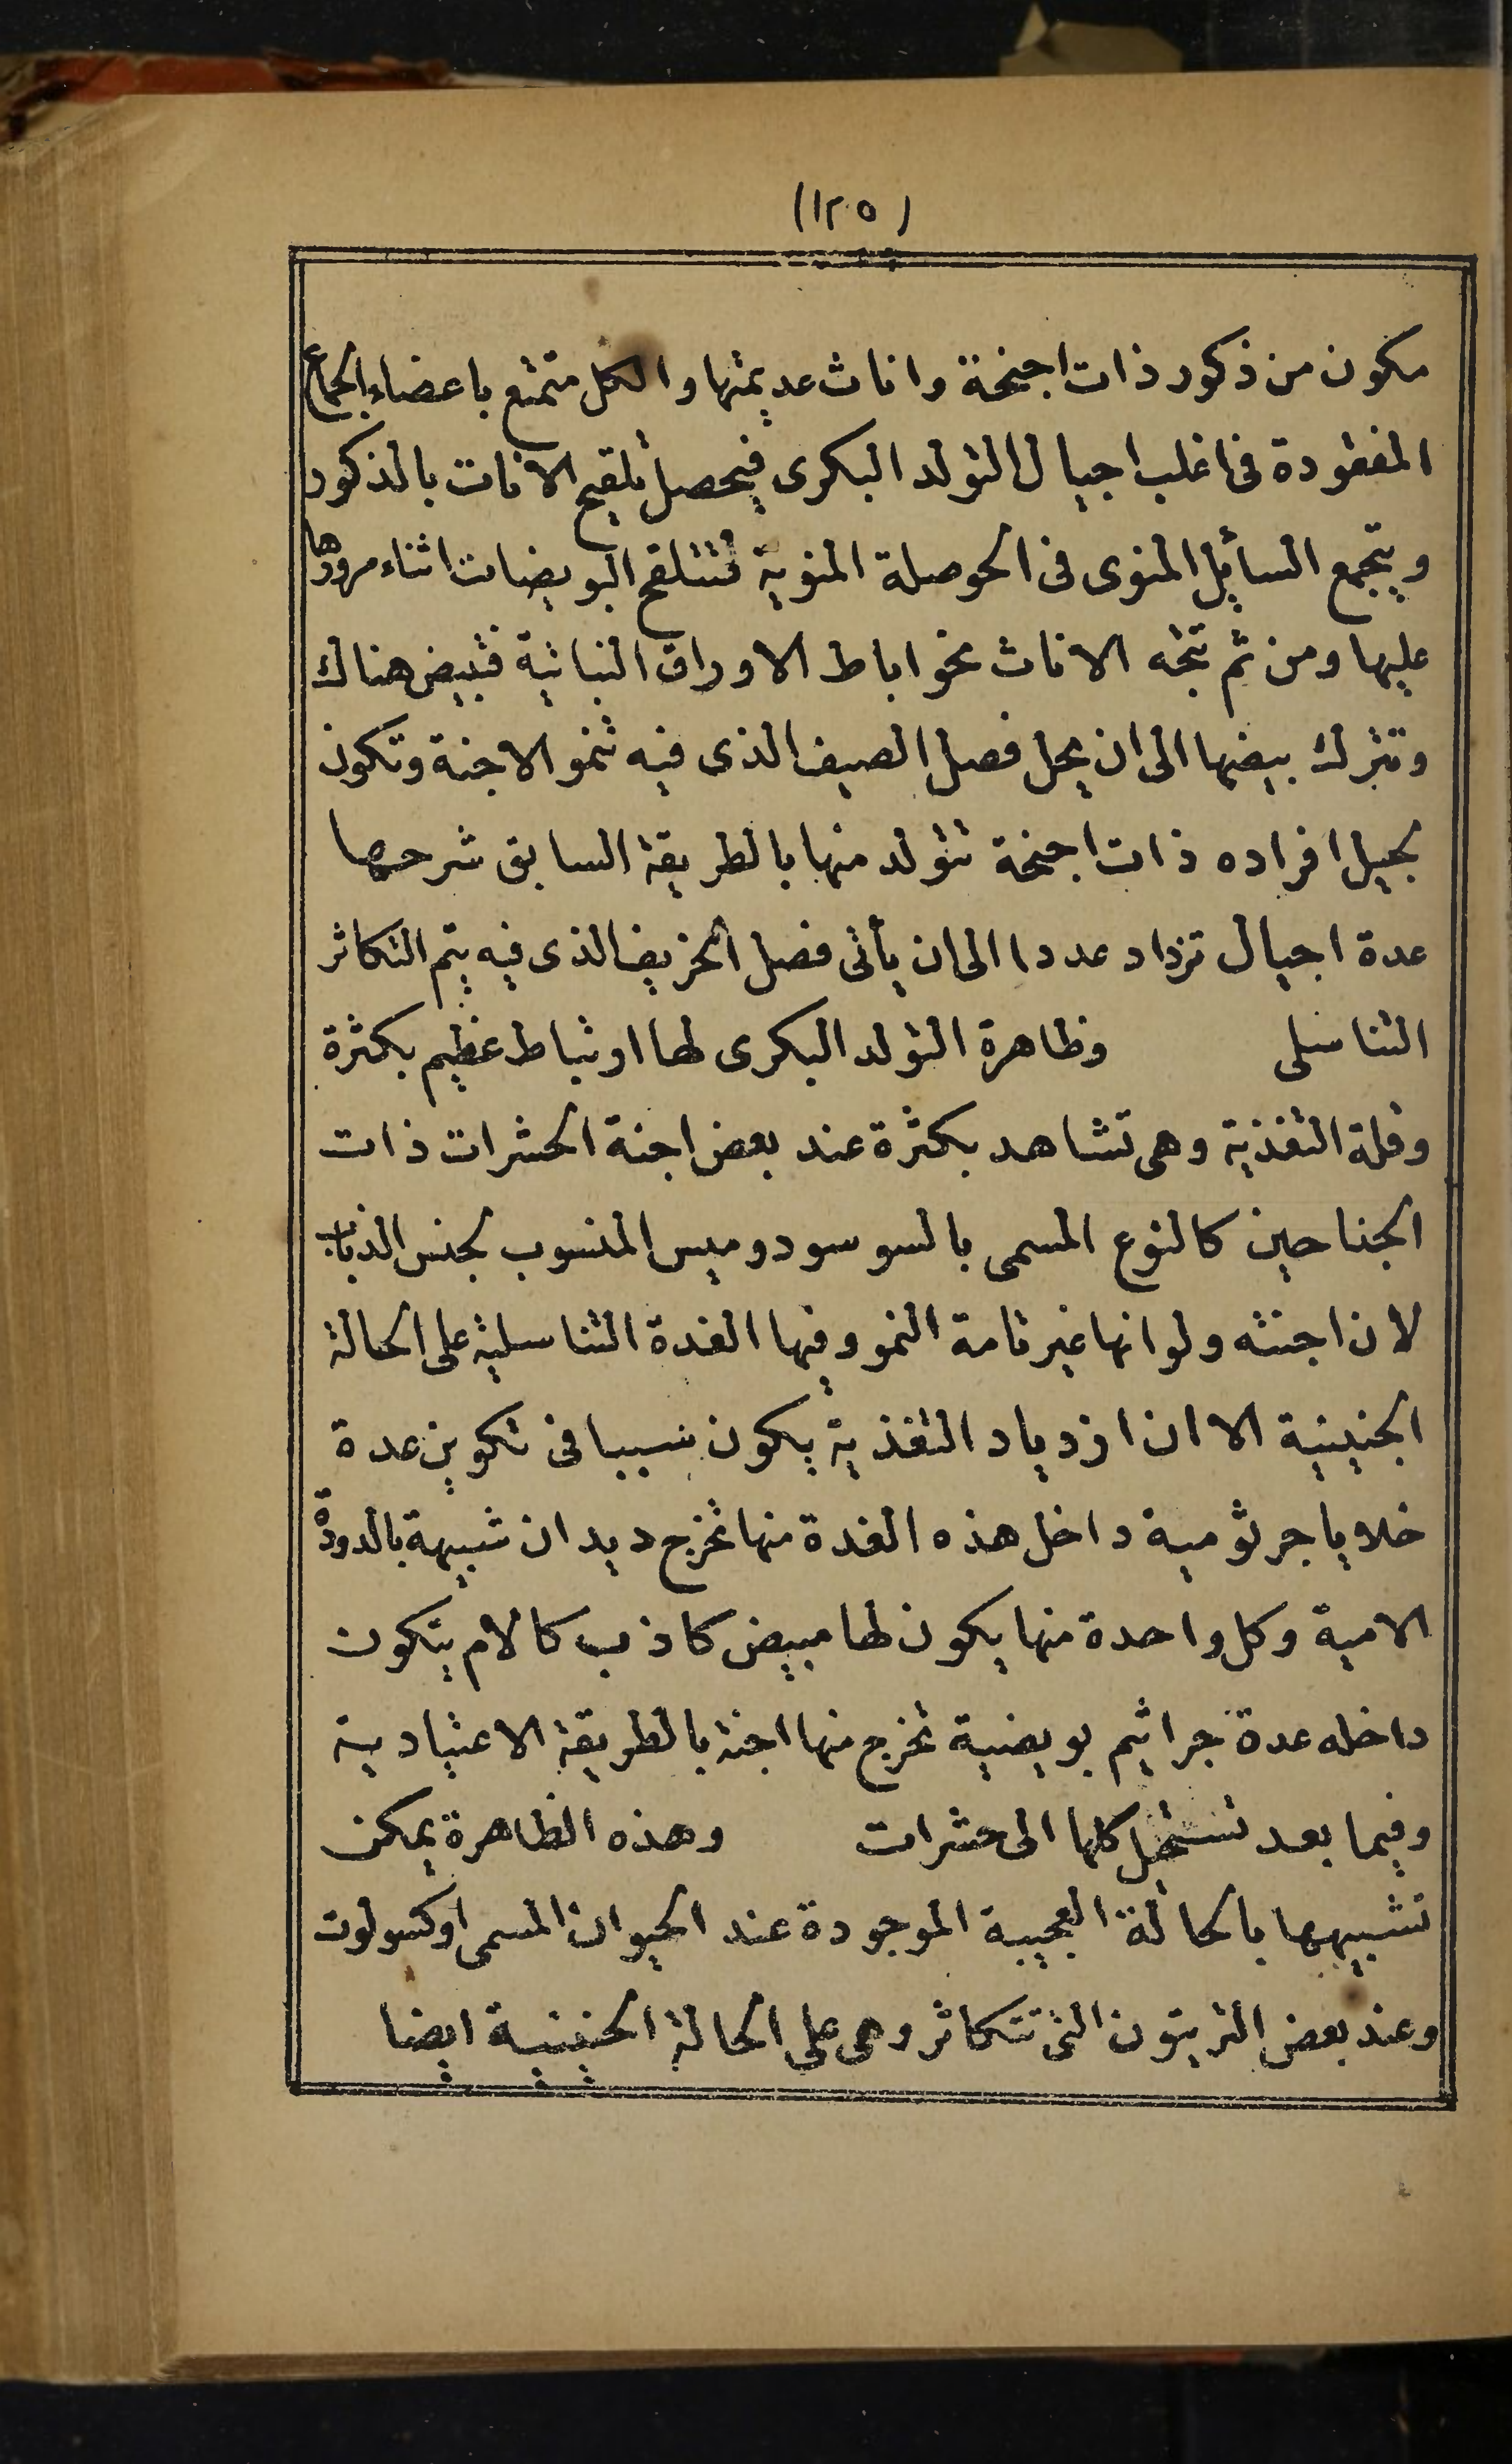 (١٢٥)
مكون من ذكور ذات اجنحة واناث عديمتها والكل متمتع باعضاء الجماع
المفقودة فى اغلب اجيال التولد البكرى فيحصل تلقيح الاناث بالذكور
ويتجمع السائل المنوى فى الحوصلة المنوية فتتلقح البويضات اثناء مرورها
عليها ومن ثم تتجه الاناث نحو اباط الاوراق النباتية فتبيض هناك
وتترك بيضها الى ان يحل فصل الصيف الذى فيه تنمو الاجنة وتكون
لجيل افراده ذات اجنحة تتولد منها بالطريقة السابق شرحها
عدة اجيال تزداد عددا الى ان يأتى فصل الخريف الذى فيه يتم التكاثر
التناسلى وظاهرة التولد البكرى لها ارتباط عظيم بكثرة
وقلة التغذية وهى تشاهد بكثرة عند بعض اجنة الحشرات ذات
الجناحين كالنوع المسمى بالسوسودوميس المنسوب لجنس الذباب
لان اجنته ولو انها غير تامة النمو وفيها الغدة التناسلية على الحالة
الجنينية الا ان ازدياد التغذية يكون سببا فى تكوين عدة
خلايا جرثومية داخل هذه الغدة منها تخرج ديدان شبيهة بالدودة
الامية وكل واحدة منها يكون لها مبيض كاذب كالام يتكون
داخله عدة جراثيم بويضية تخرج منها اجنة بالطريقة الاعتيادية
وفيما بعد تستحيل كلها الى حشرات وهذه الظاهرة يمكن
تشبيهها بالحالة العجيبة الموجودة عند الحيوان المسمى اوكسولوت
وعند بعض التريتون التى تتكاثر وهى على الحالة الجنينية ايضا